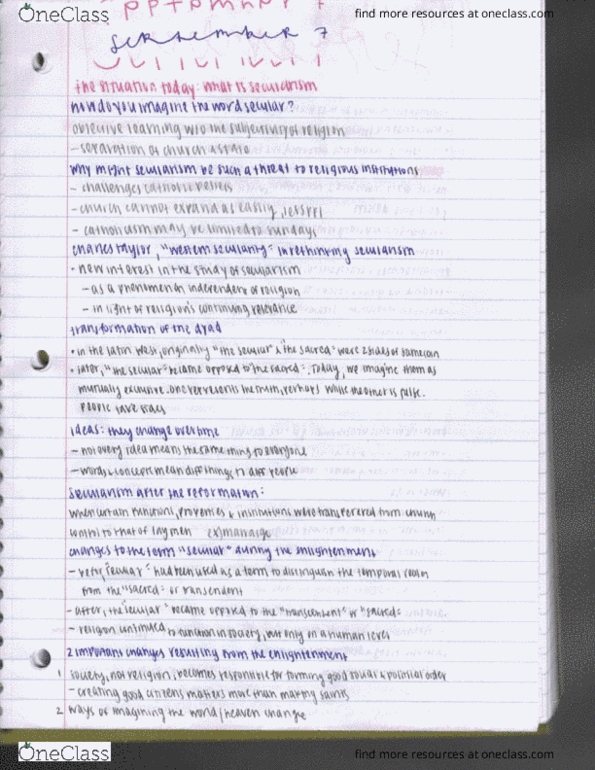 OneClass
find more resources at oneclass.com
September 7
the situation today: what is secularism
how do you imagine the word secular?
objective learning w/o the subjectivity of religion
- separation of church & state
why might secularism be such a threat to religious institutions
- challenges catholic beliefs
- church cannot expand as easily,
- catholicism may be limited to sundays
charles taylor, "western secularity" in rethinking secularism
• new interest in the study of secularism
- as a phenomenon independent of religion
- in light of religion's continuing relevance
transformation of the dyad
• in the latin west, originally "the secular" & "the sacred" were 2 sides of same coin
• later, "the secular" became opposed to "the sacred". Today, we imagine them as
mutually exclusive. one represents the truth, perhaps while the other is false.
people take sides
ideas: they change overtime
- not every idea means the same thing to everyone
- words & concepts mean diff things to diff people
secularism after the reformation:
when certain functions, properties & institutions were transferred from church
control to that of laymen (ex) marriage
changes to the term "secular" during the enlightenment
- before, "secular" had been used as a term to distinguish the temporal realm
from the "sacred" or transcendent
- after, the "secular" became opposed to the "transcendent" or "sacred"
- religion continued to function in society, but only on a human level
2 important changes resulting from the enlightenment
1 society, not religion, becomes responsible for forming good social & political order
- creating good citizens matters more than making saints
2 ways of imagining the world/heaven change
OneClass
find more resources at oneclass.com